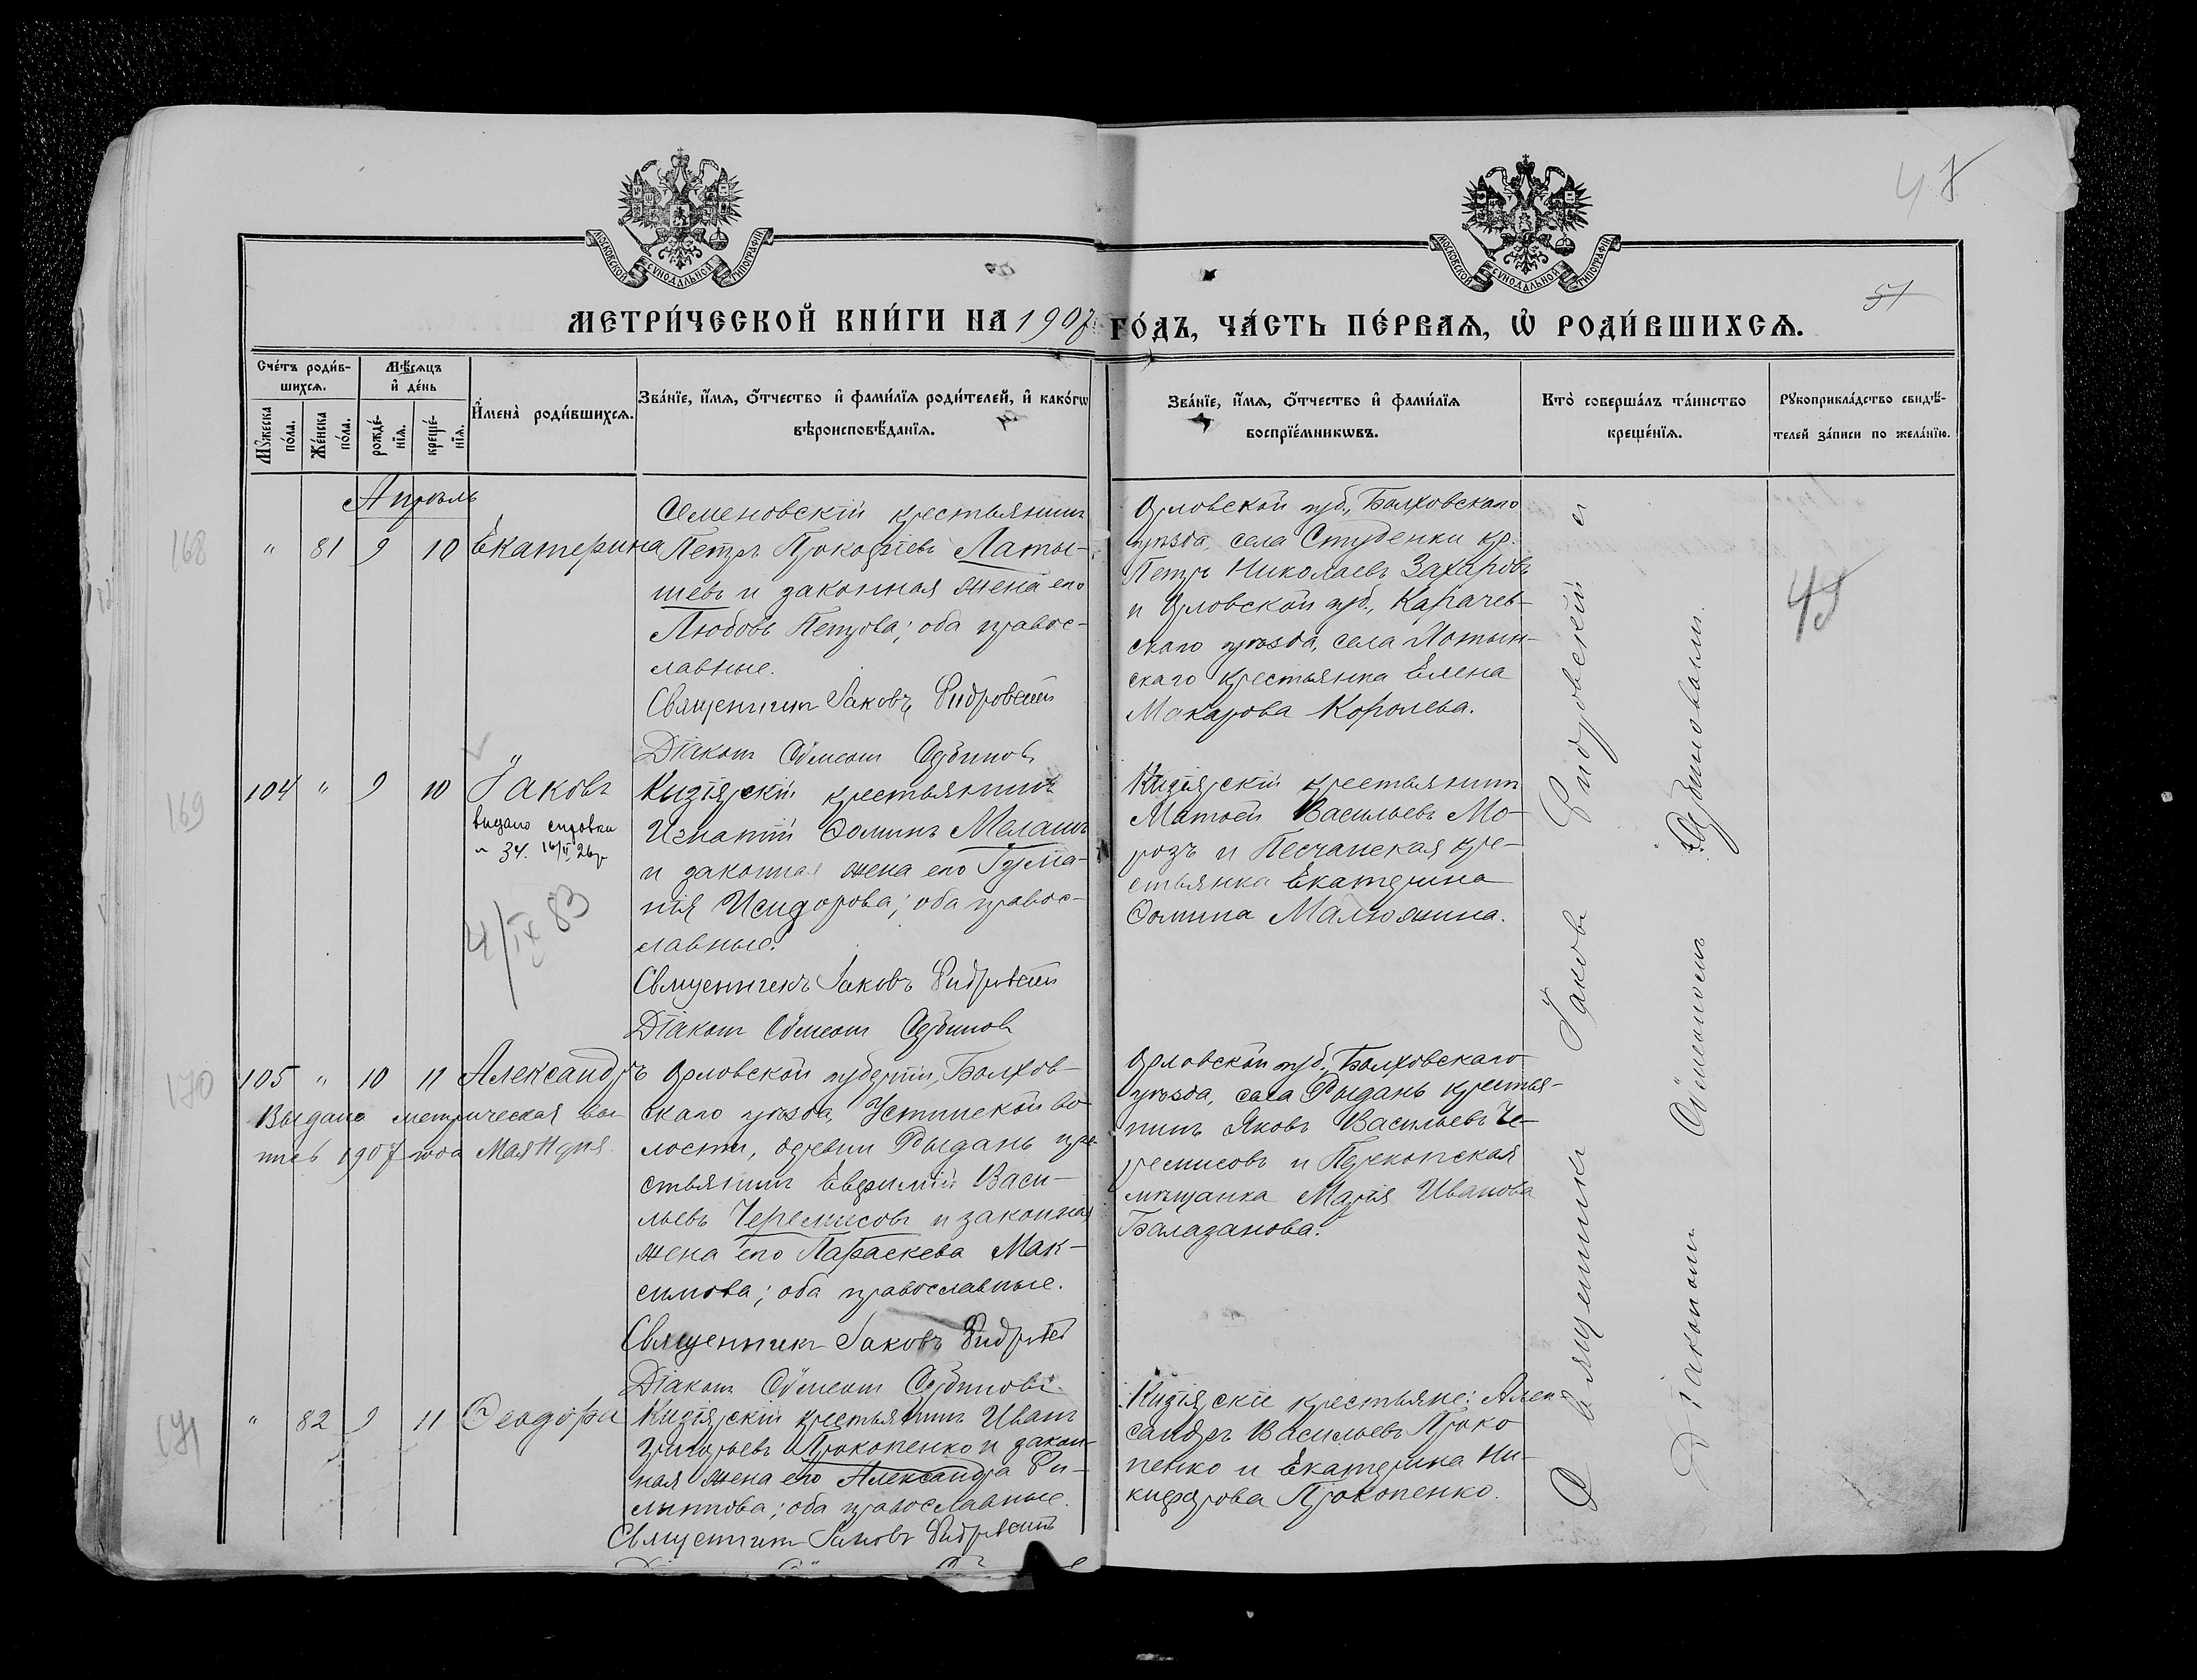 МОСКОВСКОЙ СѴНОДАЛЬНОЙ ТИПОГРАФІИ
МОСКОВСКОЙ СѴНОДАЛЬНОЙ ТИПОГРАФІИ
47
51
МЕТРИ́ЧЕСКОЙ КНИ́ГИ НА 1907 ГО́ДЪ, ЧА́СТЬ ПЕ́РВАѦ, Ѡ҆ РОДИ́ВШИХСѦ.
Сче́тъ роди́в-
шихсѧ.
Мꙋ́жеска
по́ла.
Же́нска
по́ла.
Мѣ́сѧцъ
и҆ де́нь
рожде́-
нїѧ.
креще́-
нїѧ.
И҆мена̀ роди́вшихсѧ.
Зва́нїе, и҆́мѧ, ѻ҆́тчество и҆ фами́лїѧ роди́телей, и҆ како́гѡ
вѣроисповѣ́данїѧ.
Зва́нїе, и҆́мѧ, ѻ҆́тчество и҆ фами́лїѧ
воспрїе́мникѡвъ.
Кто̀ соверша́лъ та́инство
креще́нїѧ.
Рꙋкоприкла́дство свидѣ́-
телей за́писи по жела́нїю.
Апрѣль
168
" 81 9 10 Екатерина
Семеновскій крестьянинъ
Петръ Прокофіевъ Латы-
шевъ и законная жена его
Любовь Петрова; оба правос-
лавные.
Священникъ Іаковъ
Діаконъ Сѵмеонъ
Орловской губ., Болховскаго
уѣзда, села Студенки кр.
Петръ Николаевъ Захаровъ
и Орловской губ., Карачев-
скаго уѣзда, села
скаго крестьянка Елена
Макарова Королева.
45
169
104 " 9 10 Іаковъ
выдано справка
34. 16/II 26г
4/IX 83
Кизіярскій крестьянинъ
Игнатій Ѳоминъ
и законная жена его
нія Исидорова; оба правос-
лавные.
Священникъ Іаковъ
Діаконъ Сѵмеонъ
Кизіярскій крестьянинъ
Матѳей Васильевъ Мо-
розъ и Песчанская кре-
стьянка Екатерина
Ѳомина
170
105 " 10 11 Александръ
Выдана метрическая вы-
пись 1907 года Мая 11 дня
Орловской губерніи, Болхов-
скаго уѣзда, Устинской во-
лости, деревни Рыдань кре-
стьянинъ Евфимій Васи-
льевъ Черемисовъ и законная
жена его Параскева Мак-
симова; оба православные.
Священникъ Іаковъ
Діаконъ Сѵмеонъ
Орловской губ., Болховскаго
уѣзда, села Рыдань крестья-
нинъ Яковъ Васильевъ Че-
ремисовъ и Перекопская
мѣщанка Марія Иванова
Балазанова.
171
" 82 9 11 Ѳеодора
Кизіярскій крестьянинъ Иванъ
Григорьевъ Прокопенко и закон-
ная жена его Александра Фи-
липпова; оба православные.
Священникъ Іаковъ
Кизіярскіе крестьяне: Алек
сандръ Васильевъ Проко
пенко и Екатерина Ни-
кифорова Прокопенко.
Священникъ Іаковъ и
Діакономъ Сѵмеономъ